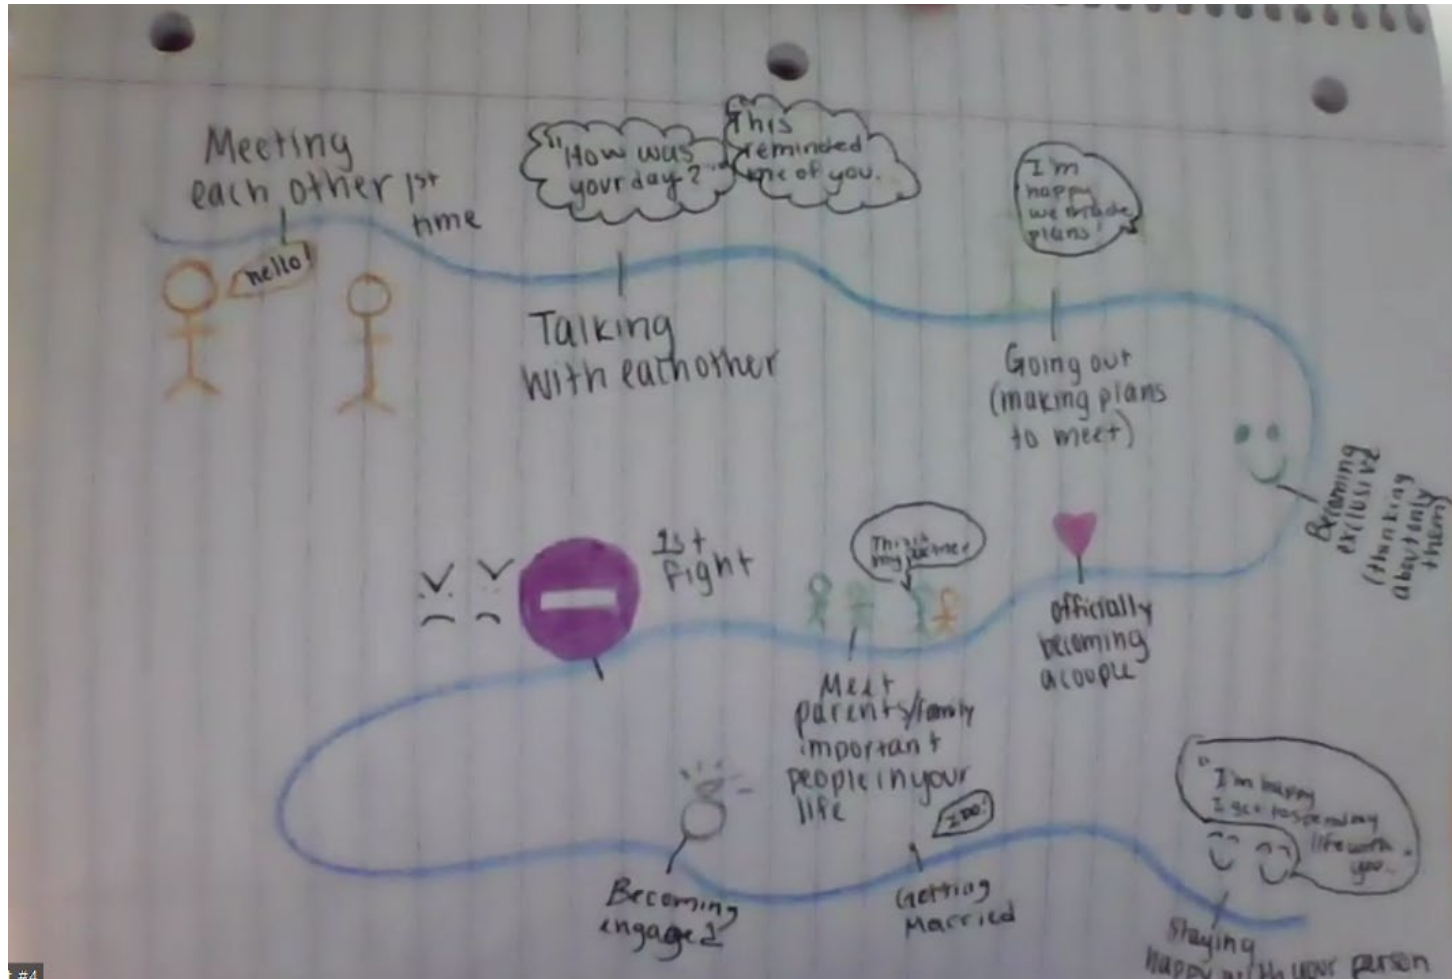 Meeting
each other 1st
time
hello!
"How was
your day?"
This
reminded
me of you.
Talking
with eachother
I'm
happy
we made
plans!
Going out
(making plans
to meet)
Becoming
exclusive
(thinking
about only
them)
officially
becoming
a couple
This is
my partner
Meet
parents/family
important
people in your
life
1st
Fight
Becoming
engaged
I DO!
Getting
Married
"I'm happy
I get to spend my
life with
you."
Staying
happy with your person
#4